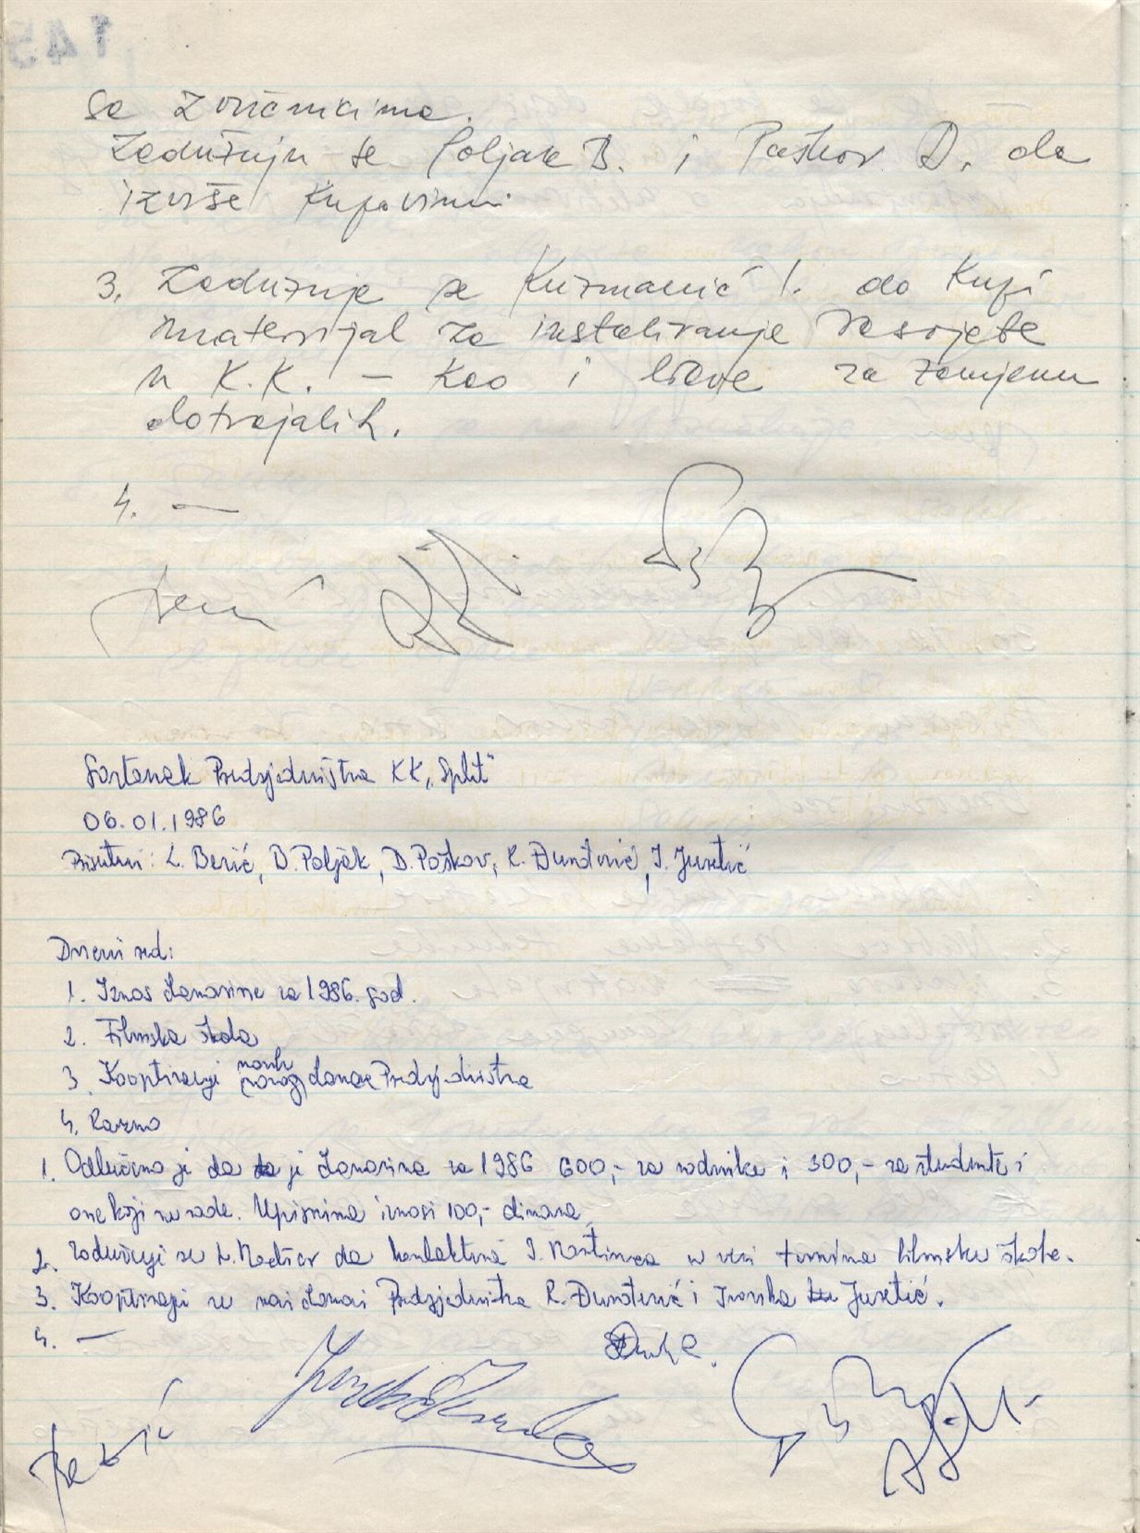 sa zvučnicima.
Zadužuju se Poljak B. i Paškov D. da
izvrše kupovinu
3. Zadužuje se Kuzmanić I. da kupi
materijal za instaliranje rasvjete
u K.K. – kao i за zamjenu
dotrajalih.
4. —
Sastanak Predsjedništva KK „Split"
06.01.1986
Prisutni: L. Berić, B. Poljak, D. Paškov, R. I. Juretić
Dnevni red:
1. Iznos članarine za 1986. god.
2. Filmska škola
3. Kooptiranje novih članova Predsjedništva
4. Razno
1. Odlučeno je da je članarina za 1986 600,- za radnike i 300,- za studente i
one koji ne rade. Upisnina iznosi 100,- dinara
2. Zadužuje se L. da kontaktira I. Martinca u vezi termina filmske škole.
3. Kooptiraju se novi članovi Predsjedništva R. i Ivanka Juretić.
4. —